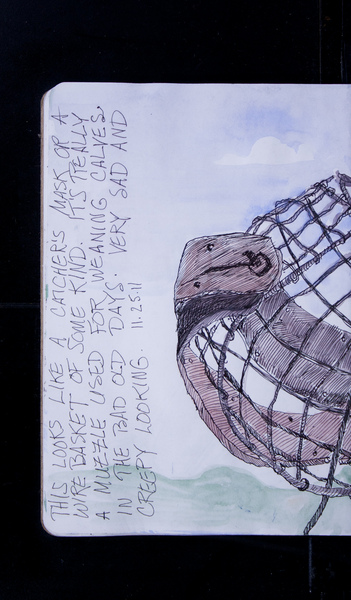 THIS LOOKS LIKE A CATCHER'S MASK OR A
WIRE BASKET OF SOME KIND. IT'S REALLY
A MUZZLE USED FOR WEANING CALVES,
IN THE BAD OLD DAYS. VERY SAD AND
CREEPY LOOKING. 11.25.11